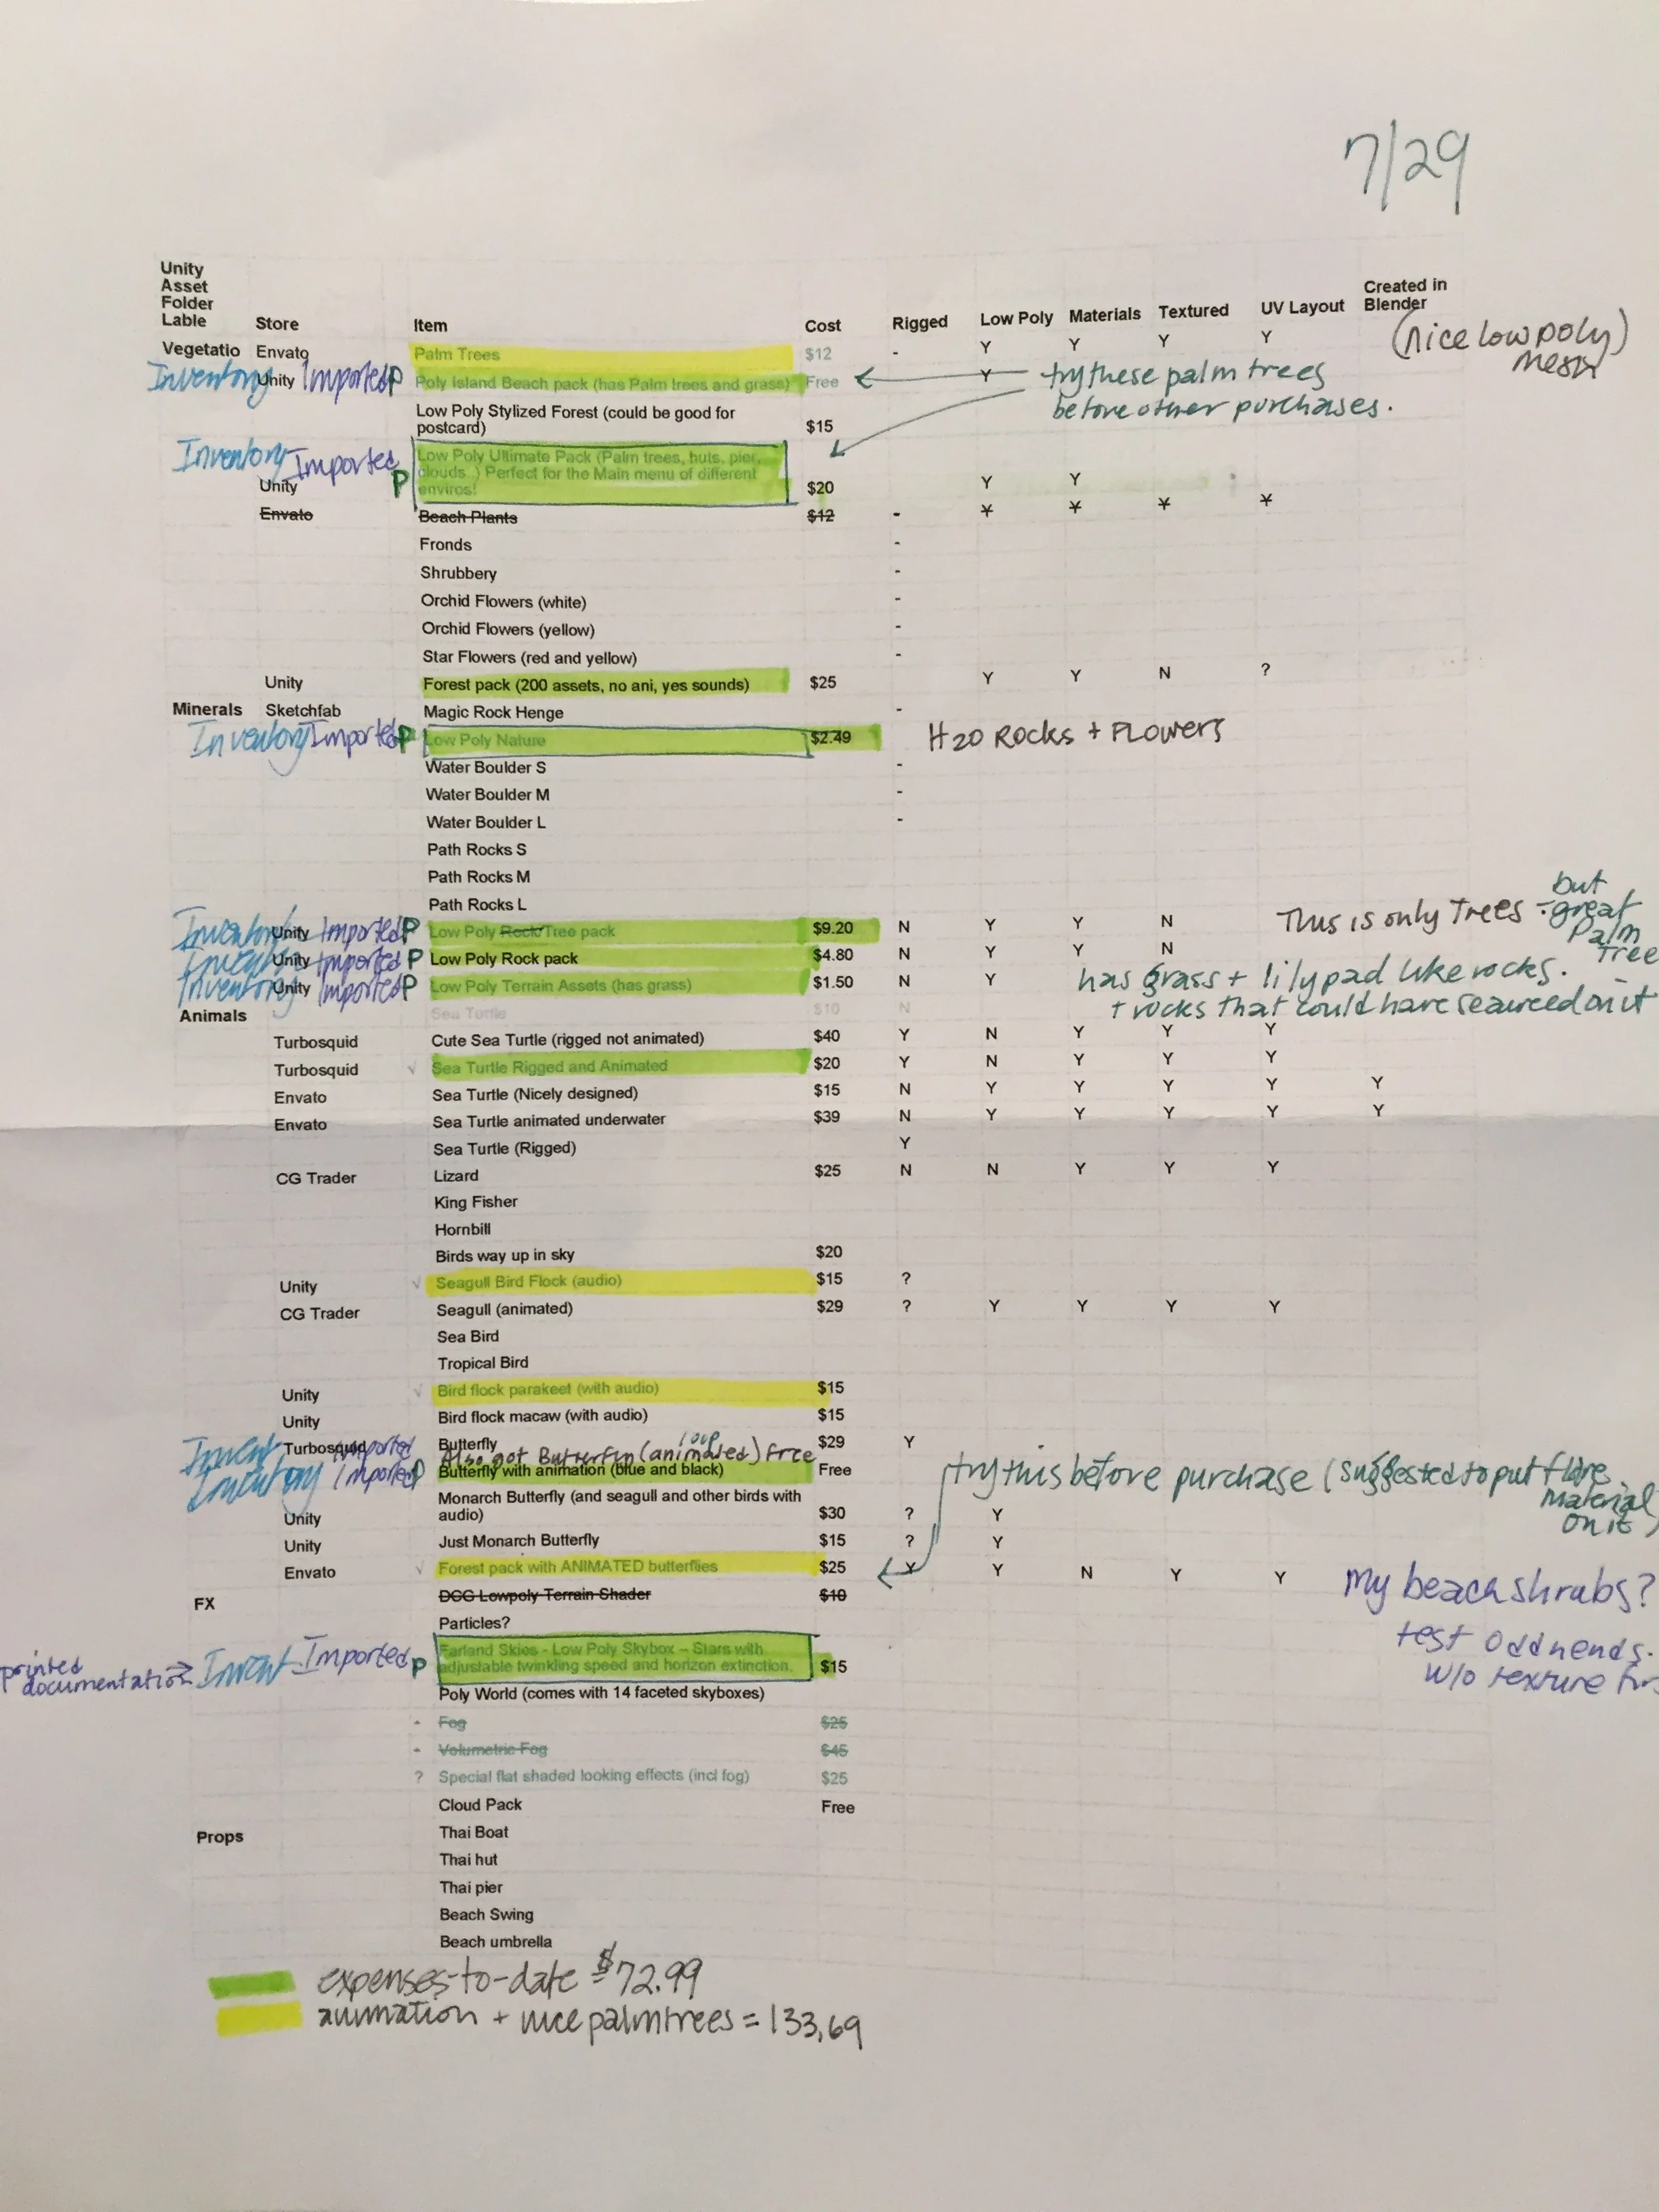 7/29
Unity
Asset
Folder
Lable Store Item Cost Rigged Low Poly Materials Textured UV Layout Created in Blender
Vegetatio Envato Palm Trees $12 - Y Y Y Y (nice low poly) mesh
Inventory Unity Imported P Poly Island Beach pack (has Palm trees and grass) Free Y try these palm trees
before other purchases.
Low Poly Stylized Forest (could be good for
postcard) $15
Inventory Imported Low Poly Ultimate Pack (Palm trees, huts, pier,
clouds..) Perfect for the Main menu of different
Unity P enviros! $20 Y Y
Envato Beach Plants $12 - Y Y Y Y
Fronds -
Shrubbery -
Orchid Flowers (white) -
Orchid Flowers (yellow) -
Star Flowers (red and yellow) -
Unity Forest pack (200 assets, no ani, yes sounds) $25 Y Y N ?
Minerals Sketchfab Magic Rock Henge -
Inventory Imported P Low Poly Nature $2.49 H2O Rocks + Flowers
Water Boulder S -
Water Boulder M -
Water Boulder L -
Path Rocks S
Path Rocks M
Path Rocks L
Inventory Unity Imported P Low Poly Rock Tree pack $9.20 N Y Y N This is only Trees - but great Palm Tree
Inventory Unity Imported P Low Poly Rock pack $4.80 N Y Y N
Inventory Unity Imported P Low Poly Terrain Assets (has grass) $1.50 N Y has grass + lilypad like rocks.
+ rocks that could have seaweed on it
Animals Sea Turtle $10 N
Turbosquid Cute Sea Turtle (rigged not animated) $40 Y N Y Y Y
Turbosquid √ Sea Turtle Rigged and Animated $20 Y N Y Y Y
Envato Sea Turtle (Nicely designed) $15 N Y Y Y Y Y
Envato Sea Turtle animated underwater $39 N Y Y Y Y Y
Sea Turtle (Rigged) Y
CG Trader Lizard $25 N N Y Y Y
King Fisher
Hornbill
Birds way up in sky $20
Unity √ Seagull Bird Flock (audio) $15 ?
CG Trader Seagull (animated) $29 ? Y Y Y Y
Sea Bird
Tropical Bird
Unity √ Bird flock parakeet (with audio) $15
Unity Bird flock macaw (with audio) $15
Invent Turbosquid Imported Butterfly $29 Y
Also got Butterfly (animated) loop free
Inventory Imported P Butterfly with animation (blue and black) Free try this before purchase (suggested to put flare
material
on it)
Monarch Butterfly (and seagull and other birds with
Unity audio) $30 ? Y
Unity Just Monarch Butterfly $15 ? Y
Envato √ Forest pack with ANIMATED butterflies $25 Y Y N Y Y My beach shrubs?
test
w/o texture
FX DCG Lowpoly Terrain Shader $10
Particles?
printed
documentation → Invent Imported P Farland Skies - Low Poly Skybox – Stars with
adjustable twinkling speed and horizon extinction. $15
Poly World (comes with 14 faceted skyboxes)
- Fog $25
- Volumetric Fog $45
? Special flat shaded looking effects (incl fog) $25
Cloud Pack Free
Props Thai Boat
Thai hut
Thai pier
Beach Swing
Beach umbrella
expenses-to-date $72.99
animation + nice palmtrees = 133.69